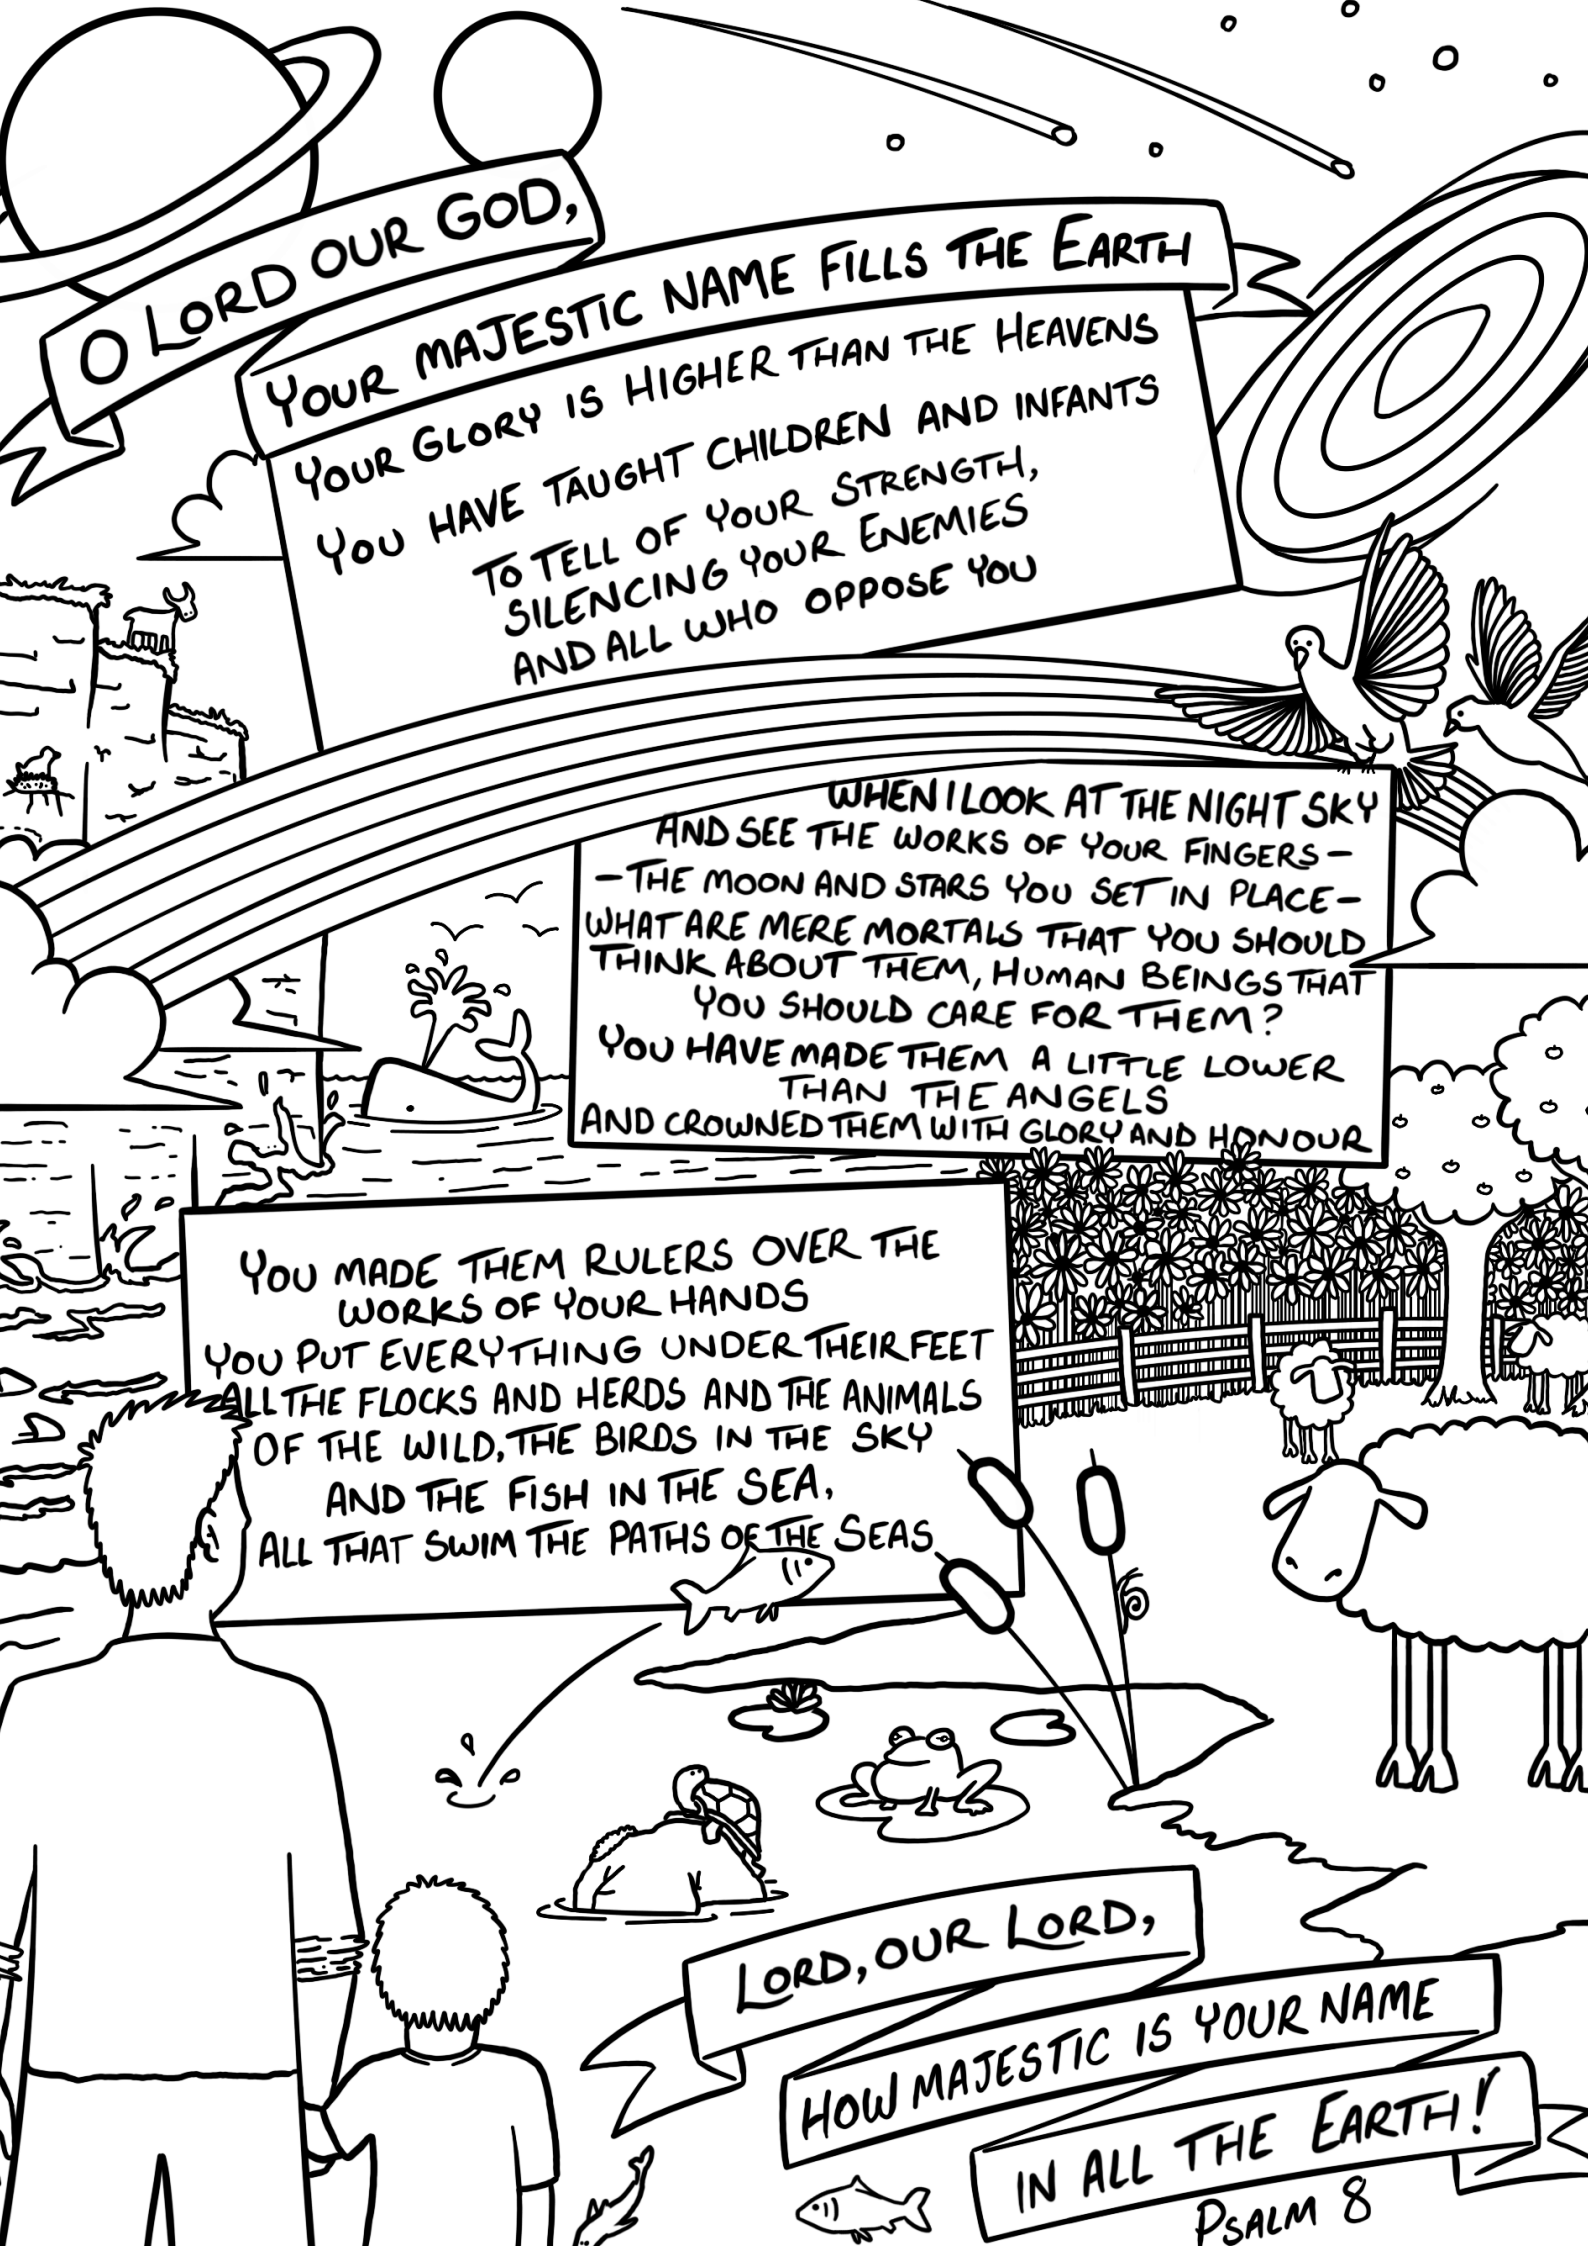 O LORD OUR GOD,
YOUR MAJESTIC NAME FILLS THE EARTH
YOUR GLORY IS HIGHER THAN THE HEAVENS
YOU HAVE TAUGHT CHILDREN AND INFANTS
TO TELL OF YOUR STRENGTH,
SILENCING YOUR ENEMIES
AND ALL WHO OPPOSE YOU
WHEN I LOOK AT THE NIGHT SKY
AND SEE THE WORKS OF YOUR FINGERS –
– THE MOON AND STARS YOU SET IN PLACE –
WHAT ARE MERE MORTALS THAT YOU SHOULD
THINK ABOUT THEM, HUMAN BEINGS THAT
YOU SHOULD CARE FOR THEM?
YOU HAVE MADE THEM A LITTLE LOWER
THAN THE ANGELS
AND CROWNED THEM WITH GLORY AND HONOUR
YOU MADE THEM RULERS OVER THE
WORKS OF YOUR HANDS
YOU PUT EVERYTHING UNDER THEIR FEET
ALL THE FLOCKS AND HERDS AND THE ANIMALS
OF THE WILD, THE BIRDS IN THE SKY
AND THE FISH IN THE SEA,
ALL THAT SWIM THE PATHS OF THE SEAS
LORD, OUR LORD,
HOW MAJESTIC IS YOUR NAME
IN ALL THE EARTH!
PSALM 8